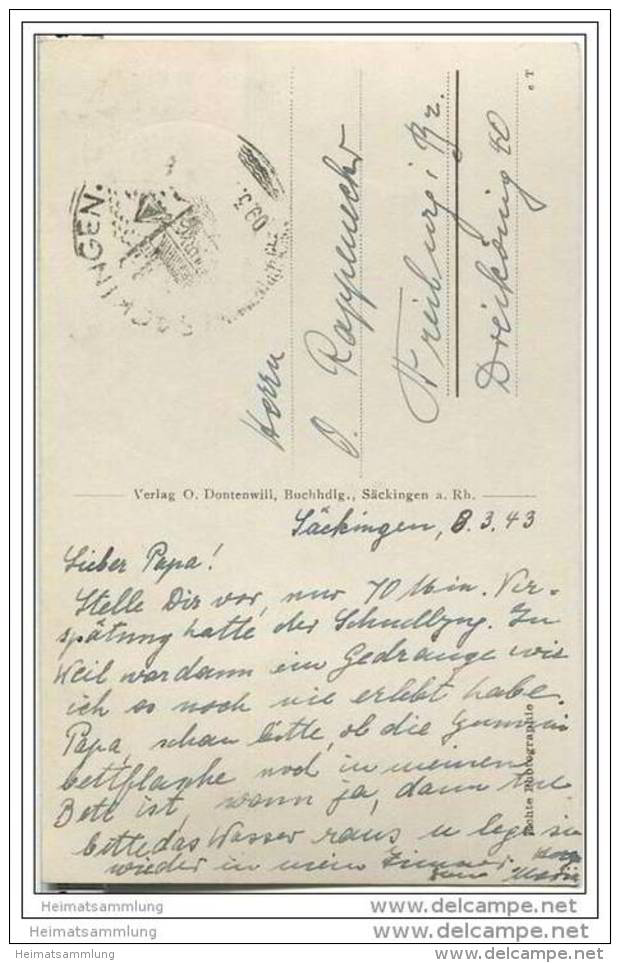 SÄCKINGEN.
Herrn
O. Rappenecker
Freiburg i. Br.
Dreikönig 40
e T
Verlag O. Dontenwill, Buchhdlg., Säckingen a. Rh.
Säckingen, 8.3.43
Lieber Papa!
Stelle Dir vor, nur 70 Min. Ver-
spätung hatte der Schnellzug. In
Weil war dann ein Gedränge wie
ich es noch nie erlebt habe.
Papa, schau bitte, ob die Gummi
bettflasche noch in meinem
Bett ist, wenn ja, dann tue
bitte das Wasser raus u lege sie
wieder in mein Zimmer
Deine Maria
Echte Photographie
Heimatsammlung www.delcampe.net
Heimatsammlung www.delcampe.net
Heimatsammlung www.delcampe.net